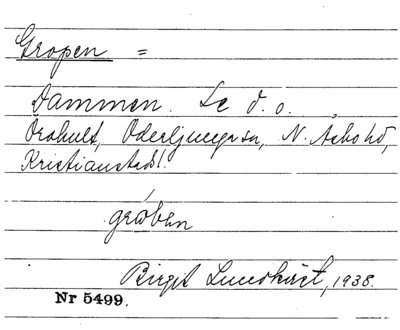 Gropen =
Dammen. Se d. o.
Örahult, Oderljunga sn, N. Åsbo hd,
Kristianstads l.
gråben
Birgit Lundkvist, 1938.
Nr 5499.